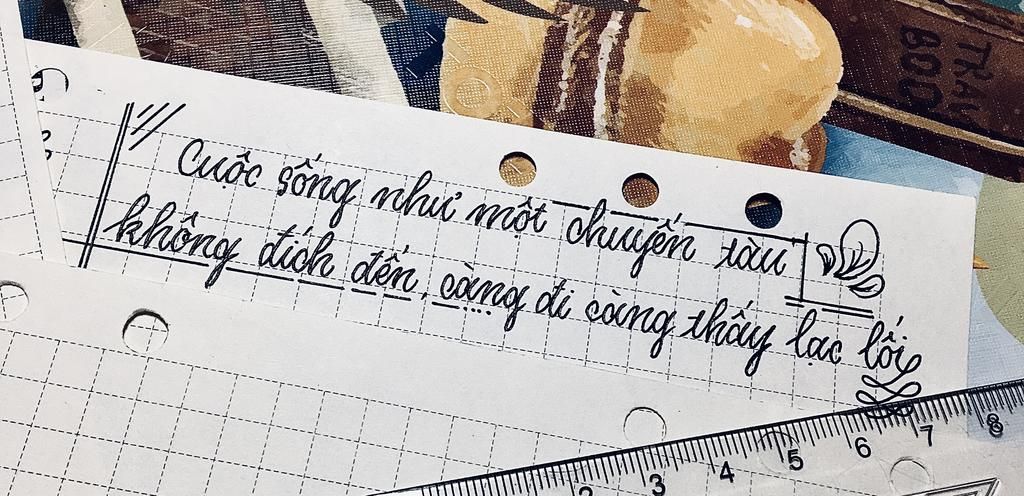 Cuộc sống như một chuyến tàu
không đích đến, càng đi càng thấy lạc lối
3 4 5 6 7 8